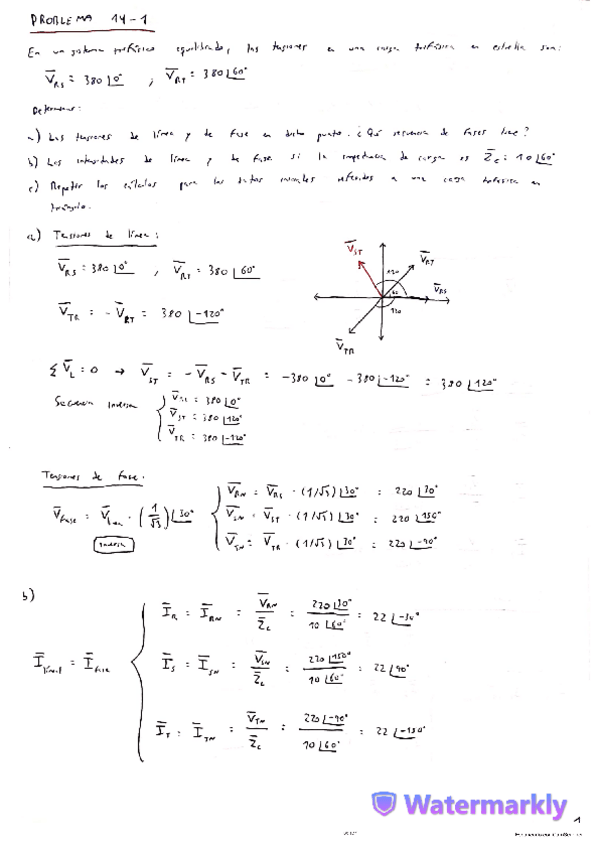 PROBLEMA 14-1
En un sistema trifásico equilibrado, las tensiones en una carga trifásica en estrella son:
V̅RS = 380 |0° , V̅RT = 380 |60°
Determinar:
a) Las tensiones de línea y de fase en dicho punto. ¿Qué secuencia de fases tiene?
b) Las intensidades de línea y de fase si la impedancia de carga es Z̅c = 10 |60°
c) Repetir los cálculos para los datos iniciales referidos a una carga trifásica en
triángulo.
a) Tensiones de línea:
V̅RS = 380 |0° , V̅RT = 380 |60°
V̅TR = -V̅RT = 380 |-120°
V̅ST V̅RT V̅RS V̅TR 120 60 120
Σ V̅L = 0 → V̅ST = -V̅RS - V̅TR = -380 |0° - 380 |-120° = 380 |120°
Secuencia inversa
V̅RS = 380 |0°
V̅ST = 380 |120°
V̅TR = 380 |-120°
Tensiones de fase:
V̅fase = V̅línea · (1/√3) |30°
inversa
V̅RN = V̅RS · (1/√3) |30° = 220 |30°
V̅SN = V̅ST · (1/√3) |30° = 220 |150°
V̅TN = V̅TR · (1/√3) |30° = 220 |-90°
b)
I̅línea = I̅fase
I̅R = I̅RN = V̅RN / Z̅c = 220 |30° / 10 |60° = 22 |-30°
I̅S = I̅SN = V̅SN / Z̅c = 220 |150° / 10 |60° = 22 |90°
I̅T = I̅TN = V̅TN / Z̅c = 220 |-90° / 10 |60° = 22 |-150°
Watermarkly
1